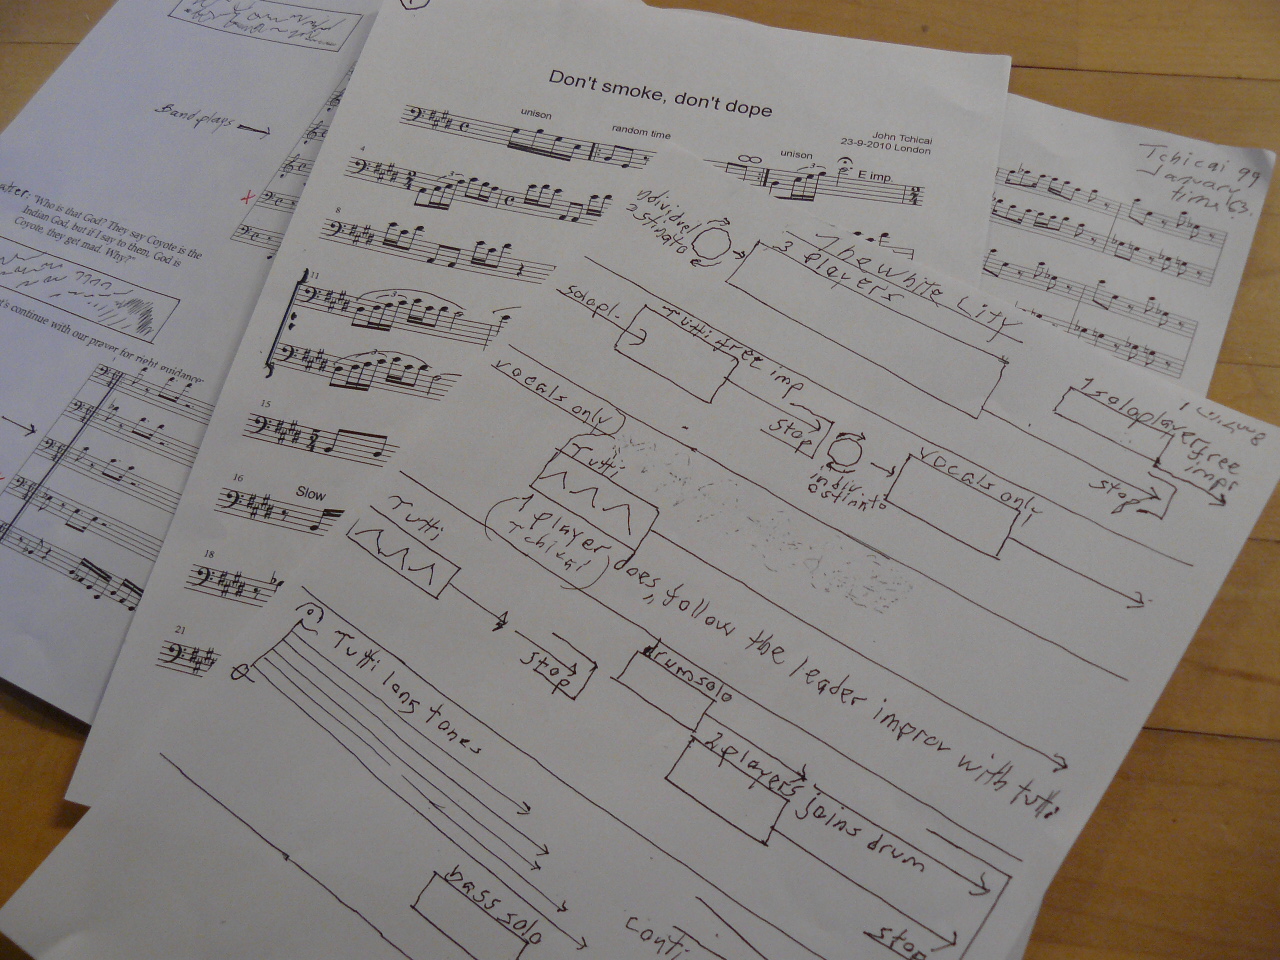 Band plays
"Who is that God? They say Coyote is the
Indian God, but if I say to them, God is
Coyote, they get mad. Why?"
continue with our prayer for right guidance
Don't smoke, don't dope
John Tchicai
23-9-2010 London
unison
random time
unison
E imp.
4
8
11
3
3
15
16
Slow
18
21
Tchicai 99
January
The White City
3 players
solopl.
Tutti free imp
stop
vocals only
1 soloplayer free
impr
stop
vocals only
Tutti
1 player
Tchicai
does, follow the leader improv with tutti
Tutti
stop
drumsolo
2 players joins drum
stop
Tutti long tones
bass solo
conti